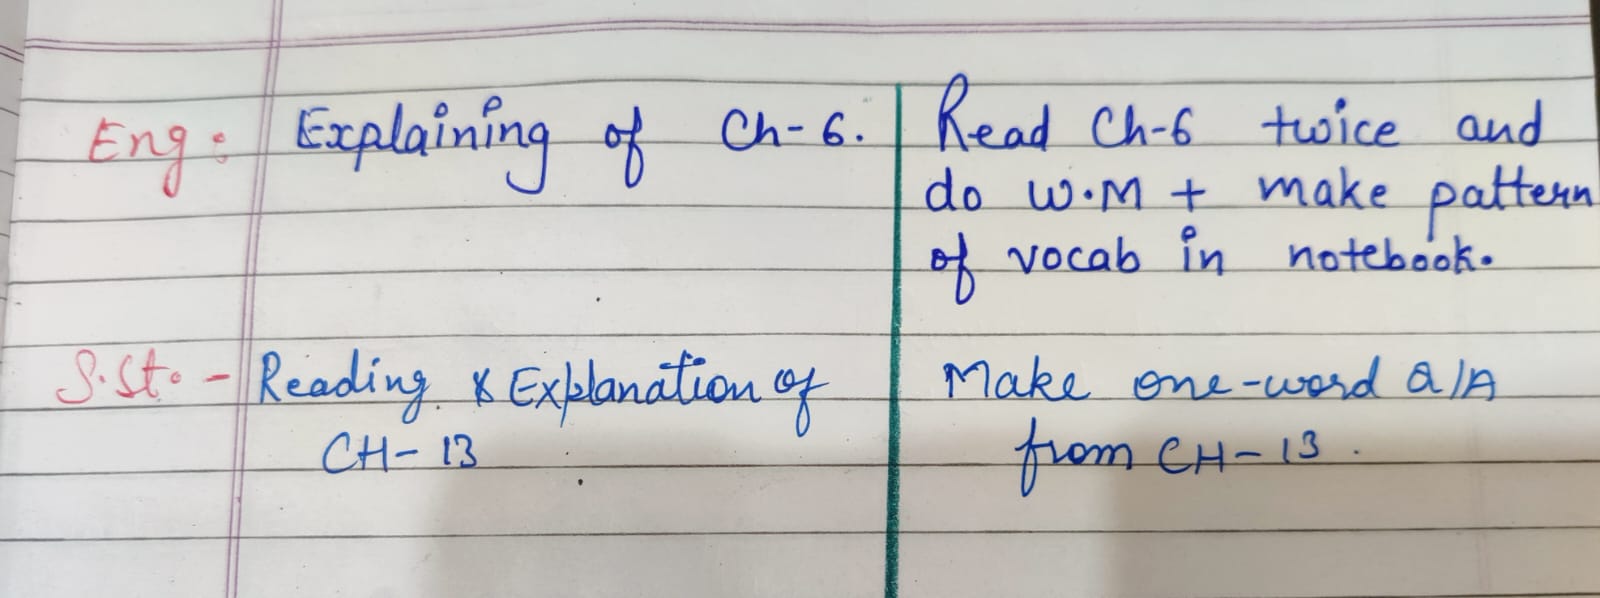 Eng: Explaining of Ch-6.
Read Ch-6 twice and
do W.M + make pattern
of vocab in notebook.
S.St. - Reading & Explanation of
CH-13
Make one-word Q/A
from CH-13.